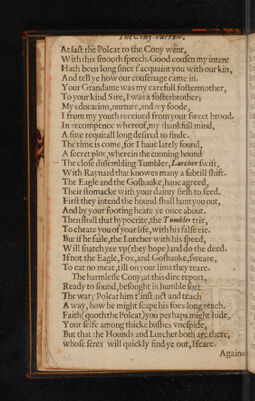 The Cony-burrow.
At last the Polcat to the Cony went,
With this smooth speech. Good cousen my intent
Hath been long since t'acquaint you with our kin,
And tell ye how our cousenage came in.
Your Grandame was my carefull fostermother,
To your kind Sire, I was a fosterbrother;
My education, nurture, and my foode,
I from my youth receiu'd from your sweet brood.
In recompence whereof, my thankfull mind,
A fine requitall long desired to finde.
The time is come, for I haue lately found,
A secret plot, wherein the cunning hound
The close dissembling Tumbler, Lurcher swift,
With Raynard that knowes many a subtill shift.
The Eagle and the Goshauke, haue agreed,
Their stomacke with your dainty flesh to feed.
First they intend the hound shall hunt you out,
And by your footing heate ye once about.
Then shall that hypocrite, the Tumbler trie,
To cheate you of your life, with his false eie.
But if he faile, the Lurcher with his speed,
Will snatch yee vp (they hope) and do the deed.
If not the Eagle, Fox, and Goshauke, sweare,
To eat no meat, till on your lims they teare.
The harmlesse Cony, at this dire report,
Ready to sound, besought in humble sort
The wary Polcat him t'instruct and teach
A way, how he might scape his foes long reach.
Faith (quoth the Polcat) you perhaps might hide,
Your selfe among thicke bushes vnespide,
But that the Hounds and Lurcher both are there,
whose sents will quickly find ye out, I feare.
Againe